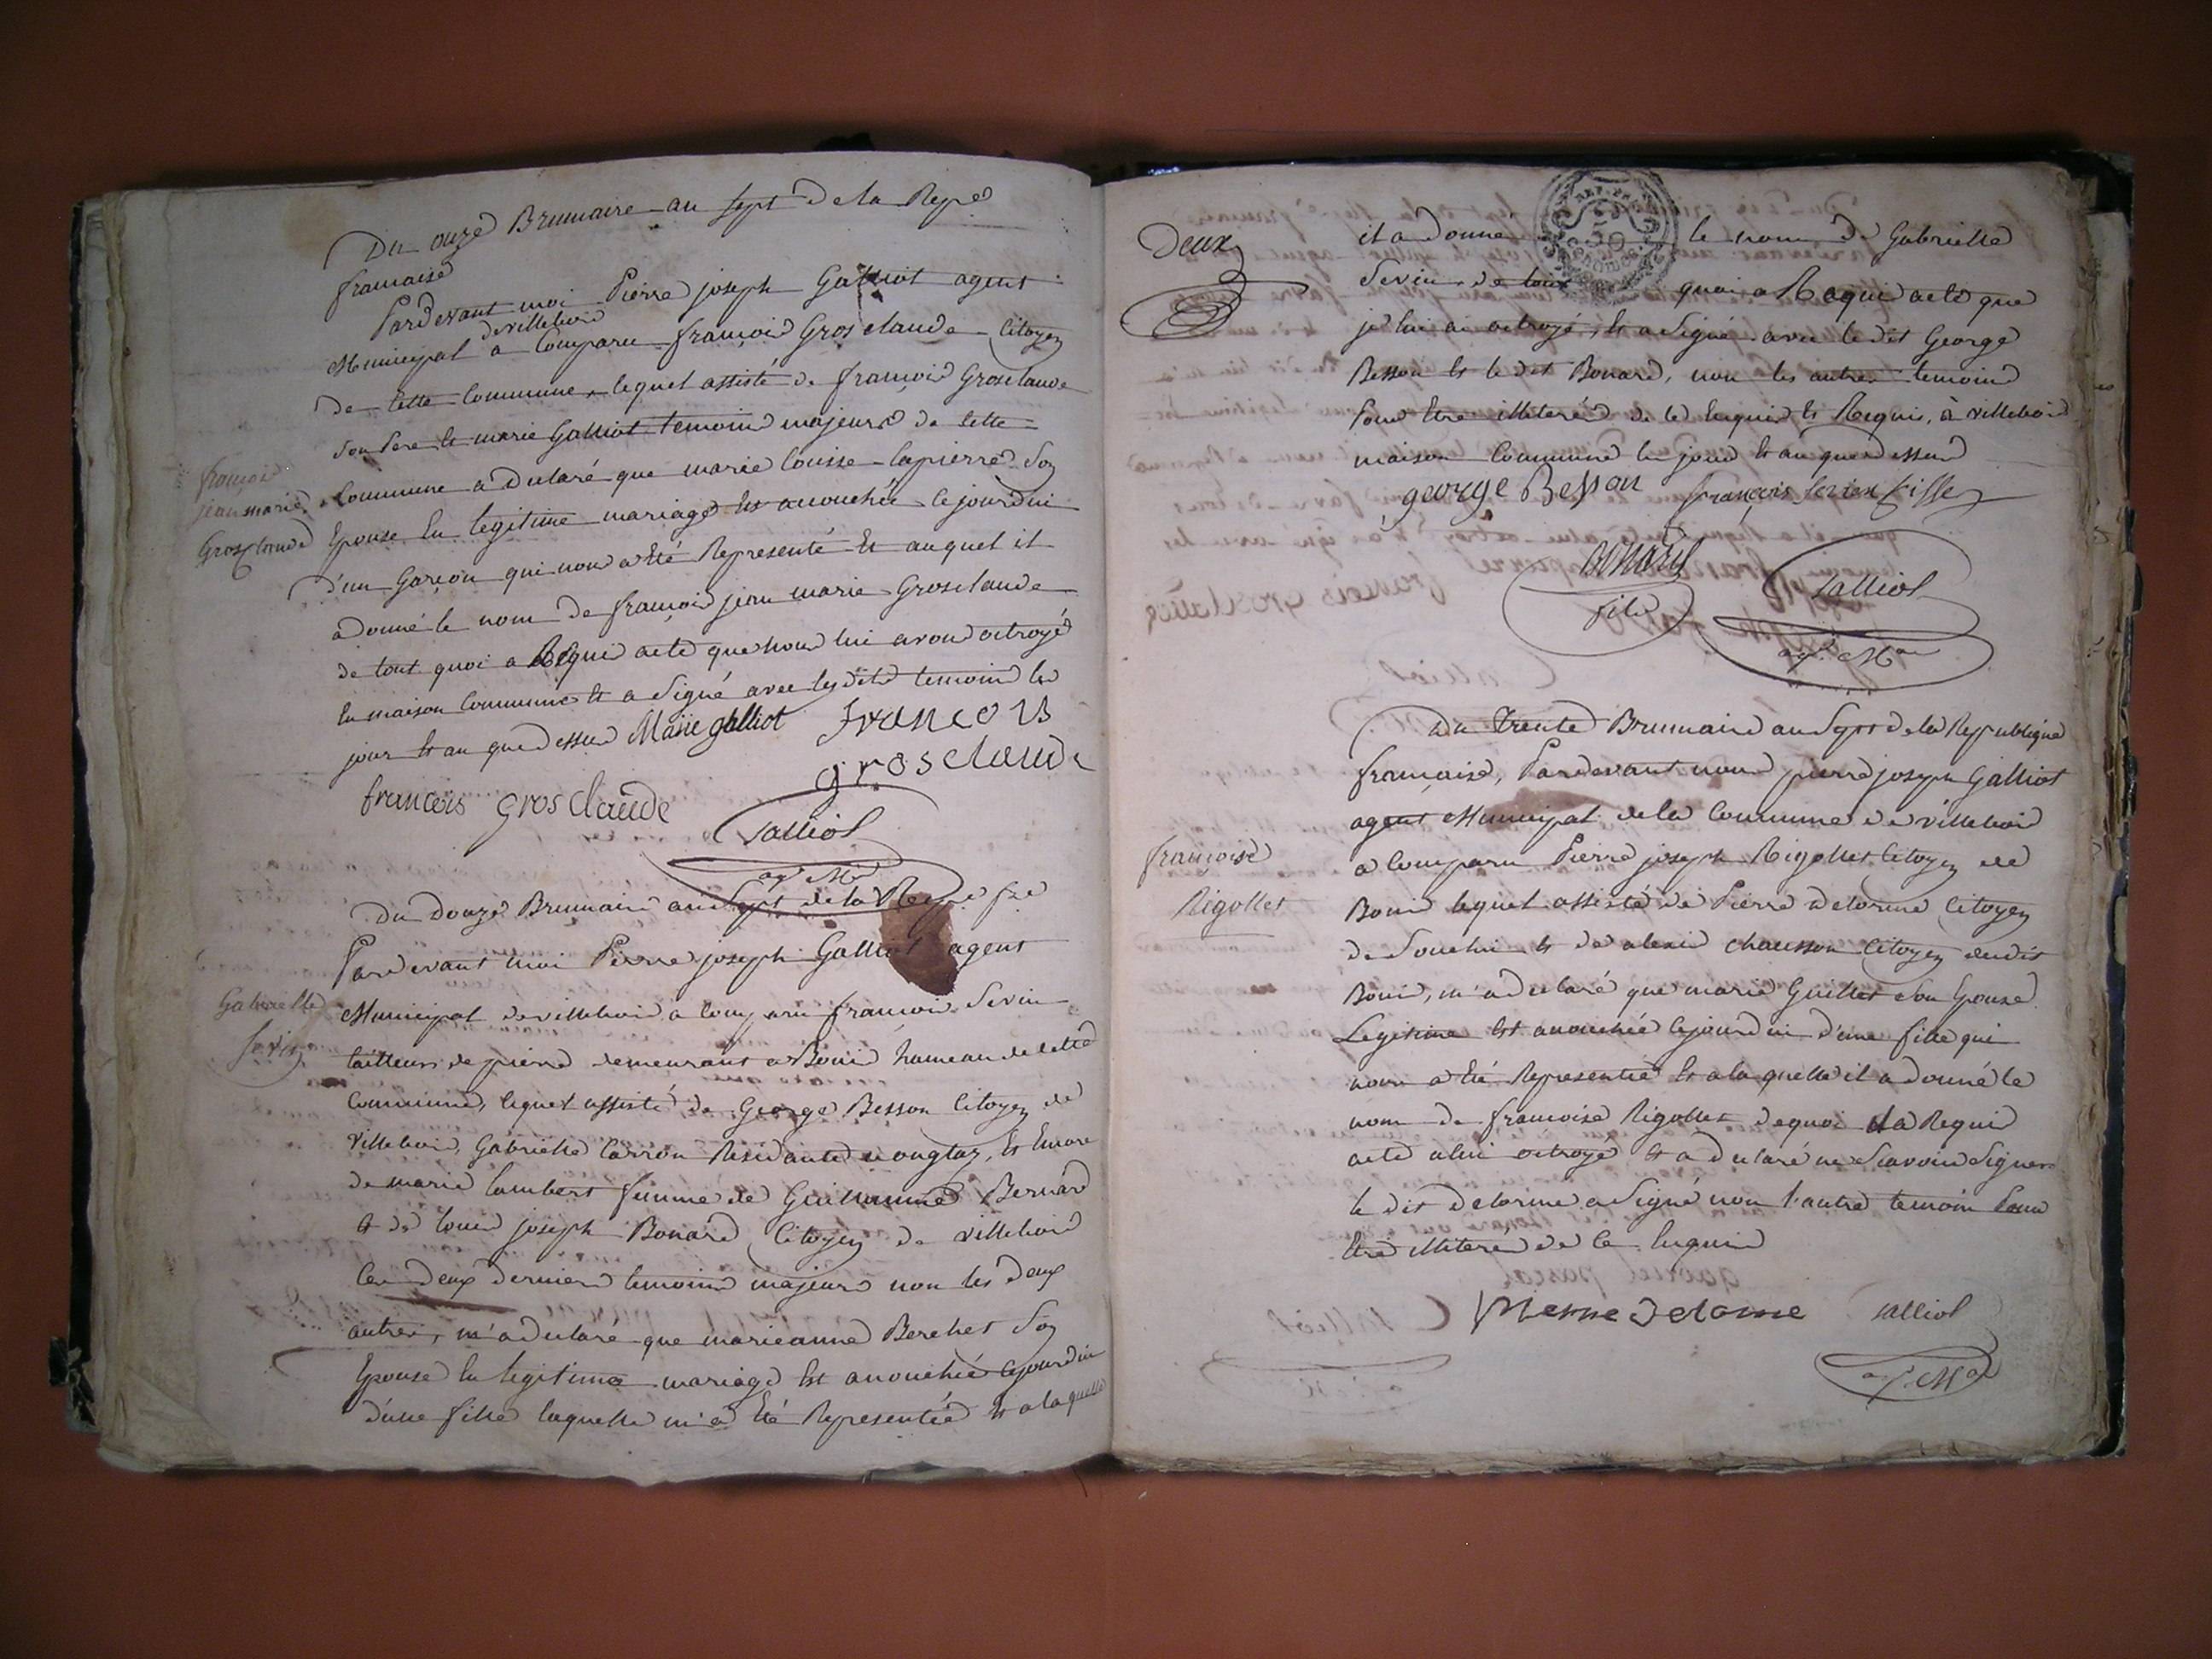 Du onze Brumaire an sept de la Repe
francaise
Pardevant moi Pierre joseph Galliot agent
de villebois
Municipal a Comparu françois Grosclaude Citoyen
de cette Commune, lequel assisté de françois Grosclaude
son Pere et marie Galliot temoins majeurs de cette
françois
jean marie
Grosclaude
Commune a declaré que marie louise lapierre son
Epouse En legitime mariage Est acouchée cejourdui
d'un Garçon qui nous a Eté Representé Et auquel il
a donné le nom de françois jean marie Grosclaude
de tout quoi a Requi acte que nous lui avons octroyé
En maison Commune Et a signé avec les dits temoins les
jour Et an que dessus Marie galliot francois
grosclaude
francois grosclaude
Galliot
agt Mal
Du douze Brumaire an Sept de la Repe fse
Pardevant moi Pierre joseph Galliot agent
Gabrielle
Sevin
Municipal de villebois a Comparu francois Sevin
tailleur de pierre demeurant a Boui hameau de cette
Commune, lequel assisté de George Besson Citoyen de
Villebois, Gabrielle Carron Residante a Et Encore
de marie lambert femme de Guillaume Bernard
Et de louis joseph Bonard Citoyen de villebois
Ces deux derniers temoins majeurs non les deux
autres, m'a declaré que marieanne Berchet Son
Epouse En legitime mariage Est acouchée cejourdui
d'une fille laquelle m'a Eté Representée Et a laquelle
Deux
il a donné le nom de Gabrielle
Sevin de tout quoi a Requi acte que
je lui ai octroyé, Et a signé avec le dit George
Besson Et le dit Bonard, non les autres temoins
Pour Etre illiterés de ce Enquis Et Requis, à villebois
maison Commune les jour Et an que dessus
george Besson françois
Bonard
fils
Galliot
agt Mal
Du trente Brumaire an Sept de la Republique
francaise, Pardevant nous pierre joseph Galliot
agent Municipal de la Commune de villebois
françoise
Rigollet
a Comparu Pierre joseph Rigollet Citoyen de
Boui lequel assisté de Pierre delorme Citoyen
de Souclin Et de alexis chausson Citoyen dudit
Boui, m'a declaré que marie Guillet Son Epouse
Legitime Est acouchée cejourdui d'une fille qui
nous a Eté Representée Et a laquelle il a donné le
nom de francoise Rigollet dequoi il a Requi
acte a lui octroyé Et a declaré ne Scavoir Signer
le dit delorme a Signé non l'autre temoin Pour
Etre illiteré de ce Enquis
Pierre delorme Galliot
agt Mal